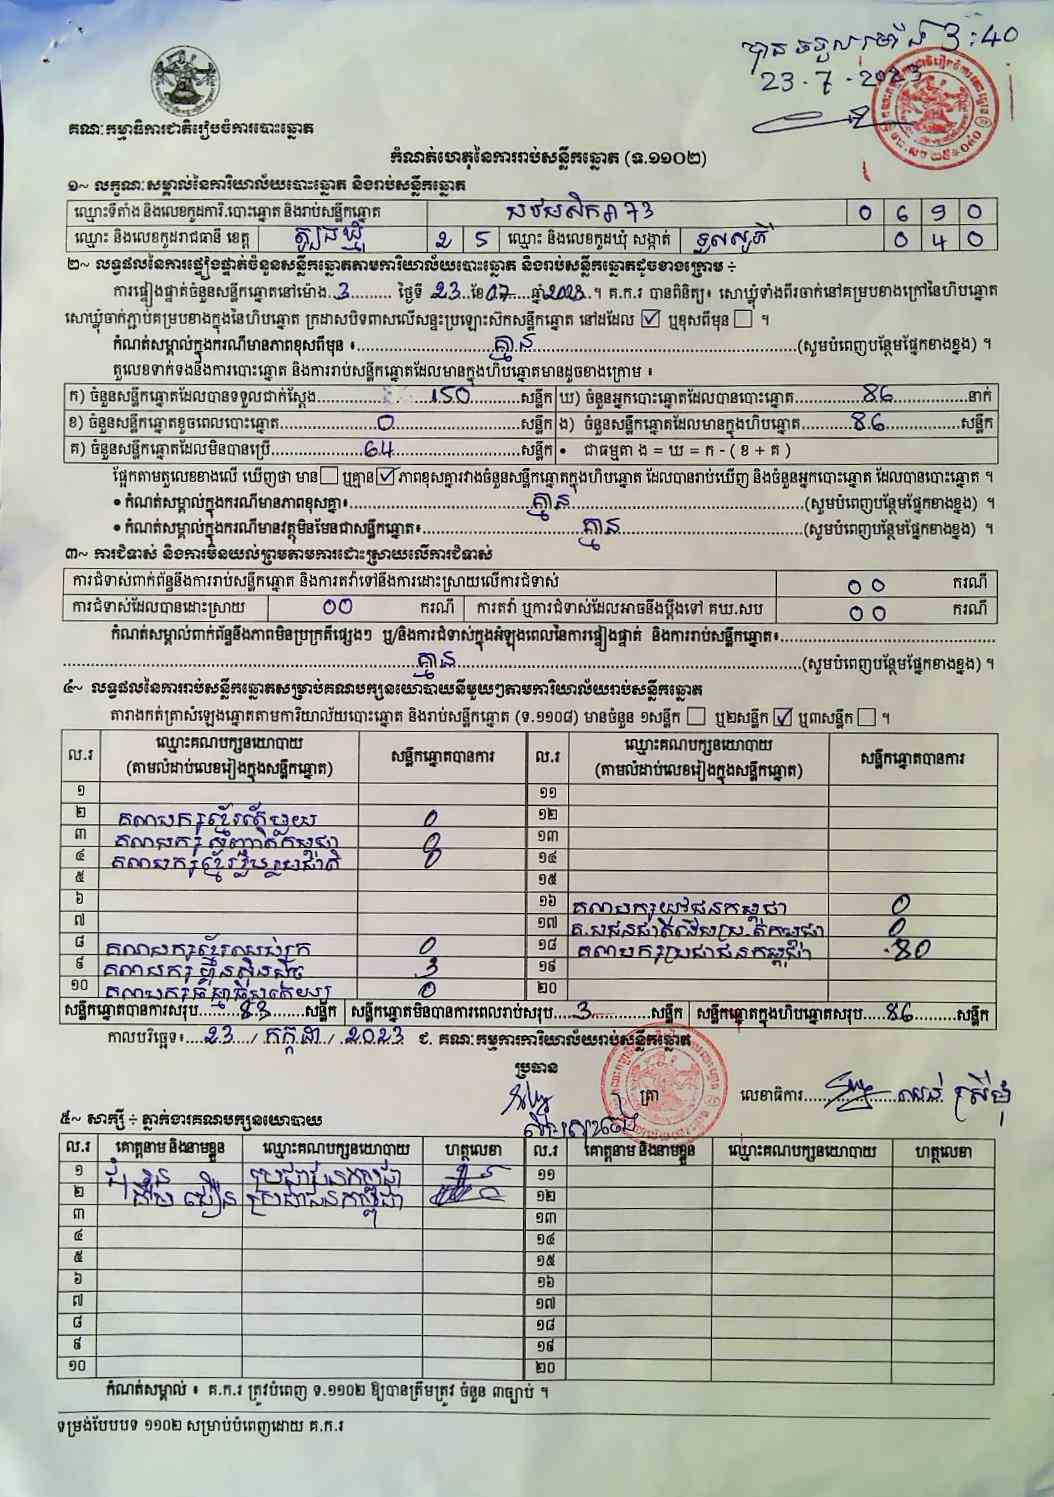 បានទទួលម៉ោង 3:40
23-7-2023
គណៈកម្មាធិការជាតិរៀបចំការបោះឆ្នោត
កំណត់ហេតុនៃការរាប់សន្លឹកឆ្នោត (ទ.១១០២)
១~ លក្ខណៈសម្គាល់នៃការិយាល័យបោះឆ្នោត និងរាប់សន្លឹកឆ្នោត
ឈ្មោះទីតាំង និងលេខកូដការិ.បោះឆ្នោត និងរាប់សន្លឹកឆ្នោត 0 6 9 0
ឈ្មោះ និងលេខកូដរាជធានី ខេត្ត ត្បូងឃ្មុំ 2 5 ឈ្មោះ និងលេខកូដឃុំ សង្កាត់ ទួលសូភី 0 4 0
២~ លទ្ធផលនៃការផ្ទៀងផ្ទាត់ចំនួនសន្លឹកឆ្នោតតាមការិយាល័យបោះឆ្នោត និងរាប់សន្លឹកឆ្នោតដូចខាងក្រោម ÷
ការផ្ទៀងផ្ទាត់ចំនួនសន្លឹកឆ្នោតនៅម៉ោង.3......... ថ្ងៃទី 23 ខែ 07 ឆ្នាំ 2023 ។ គ.ក.រ បានពិនិត្យ៖ សោឃ្លុំទាំងពីរចាក់នៅគម្របខាងក្រៅនៃហិបឆ្នោត
សោឃ្លុំចាក់ភ្ជាប់គម្របខាងក្នុងនៃហិបឆ្នោត ក្រដាសបិទពាសលើសន្ទះប្រឡោះស៊កសន្លឹកឆ្នោត នៅដដែល ☑ ឬខុសពីមុន ☐ ។
កំណត់សម្គាល់ក្នុងករណីមានភាពខុសពីមុន ៖ គ្មាន (សូមបំពេញបន្ថែមផ្នែកខាងខ្នង) ។
តួលេខទាក់ទងនឹងការបោះឆ្នោត និងការរាប់សន្លឹកឆ្នោតដែលមានក្នុងហិបឆ្នោតមានដូចខាងក្រោម ៖
ក) ចំនួនសន្លឹកឆ្នោតដែលបានទទួលជាក់ស្តែង 150 សន្លឹក ឃ) ចំនួនអ្នកបោះឆ្នោតដែលបានបោះឆ្នោត 86 នាក់
ខ) ចំនួនសន្លឹកឆ្នោតខូចពេលបោះឆ្នោត 0 សន្លឹក ង) ចំនួនសន្លឹកឆ្នោតដែលមានក្នុងហិបឆ្នោត 86 សន្លឹក
គ) ចំនួនសន្លឹកឆ្នោតដែលមិនបានប្រើ 64 សន្លឹក • ជាធម្មតា ង = ឃ = ក - ( ខ + គ )
ផ្អែកតាមតួលេខខាងលើ ឃើញថា មាន ☐ ឬគ្មាន ☑ ភាពខុសគ្នារវាងចំនួនសន្លឹកឆ្នោតក្នុងហិបឆ្នោត ដែលបានរាប់ឃើញ និងចំនួនអ្នកបោះឆ្នោត ដែលបានបោះឆ្នោត ។
• កំណត់សម្គាល់ក្នុងករណីមានភាពខុសគ្នា៖ គ្មាន (សូមបំពេញបន្ថែមផ្នែកខាងខ្នង) ។
• កំណត់សម្គាល់ក្នុងករណីមានវត្ថុមិនមែនជាសន្លឹកឆ្នោត៖ គ្មាន (សូមបំពេញបន្ថែមផ្នែកខាងខ្នង) ។
៣~ ការជំទាស់ និងការមិនយល់ព្រមតាមការដោះស្រាយលើការជំទាស់
ការជំទាស់ពាក់ព័ន្ធនឹងការរាប់សន្លឹកឆ្នោត និងការតវ៉ាទៅនឹងការដោះស្រាយលើការជំទាស់ 00 ករណី
ការជំទាស់ដែលបានដោះស្រាយ 00 ករណី ការតវ៉ា ឬការជំទាស់ដែលអាចនឹងប្តឹងទៅ គឃ.សប 00 ករណី
កំណត់សម្គាល់ពាក់ព័ន្ធនឹងភាពមិនប្រក្រតីផ្សេងៗ ឬ/និងការជំទាស់ក្នុងអំឡុងពេលនៃការផ្ទៀងផ្ទាត់ និងការរាប់សន្លឹកឆ្នោត៖
គ្មាន (សូមបំពេញបន្ថែមផ្នែកខាងខ្នង) ។
៤~ លទ្ធផលនៃការរាប់សន្លឹកឆ្នោតសម្រាប់គណបក្សនយោបាយនីមួយៗតាមការិយាល័យរាប់សន្លឹកឆ្នោត
តារាងកត់ត្រាសំឡេងឆ្នោតតាមការិយាល័យបោះឆ្នោត និងរាប់សន្លឹកឆ្នោត (ទ.១១០៨) មានចំនួន ១សន្លឹក ☐ ឬ២សន្លឹក ☑ ឬ៣សន្លឹក ☐ ។
ល.រ ឈ្មោះគណបក្សនយោបាយ (តាមលំដាប់លេខរៀងក្នុងសន្លឹកឆ្នោត) សន្លឹកឆ្នោតបានការ ល.រ ឈ្មោះគណបក្សនយោបាយ (តាមលំដាប់លេខរៀងក្នុងសន្លឹកឆ្នោត) សន្លឹកឆ្នោតបានការ
១ ១១
២ 0 ១២
៣ 0 ១៣
៤ 0 ១៤
៥ ១៥
៦ ១៦ គណបក្សយុវជនកម្ពុជា 0
៧ ១៧ 0
៨ 0 ១៨ គណបក្សប្រជាជនកម្ពុជា 80
៩ គណបក្សហ្វ៊ុនស៊ិនប៉ិច 3 ១៩
១០ គណបក្សធម្មាធិបតេយ្យ 0 ២០
សន្លឹកឆ្នោតបានការសរុប 83 សន្លឹក សន្លឹកឆ្នោតមិនបានការពេលរាប់សរុប 3 សន្លឹក សន្លឹកឆ្នោតក្នុងហិបឆ្នោតសរុប 86 សន្លឹក
កាលបរិច្ឆេទ៖ 23 / កក្កដា / 2023 ជ. គណៈកម្មការការិយាល័យរាប់សន្លឹកឆ្នោត
ប្រធាន
ត្រា លេខាធិការ
៥~ សាក្សី ÷ ភ្នាក់ងារគណបក្សនយោបាយ
ល.រ គោត្តនាម និងនាមខ្លួន ឈ្មោះគណបក្សនយោបាយ ហត្ថលេខា ល.រ គោត្តនាម និងនាមខ្លួន ឈ្មោះគណបក្សនយោបាយ ហត្ថលេខា
១ ប្រជាជនកម្ពុជា ១១
២ ប្រជាជនកម្ពុជា ១២
៣ ១៣
៤ ១៤
៥ ១៥
៦ ១៦
៧ ១៧
៨ ១៨
៩ ១៩
១០ ២០
កំណត់សម្គាល់ ៖ គ.ក.រ ត្រូវបំពេញ ទ.១១០២ ឱ្យបានត្រឹមត្រូវ ចំនួន ៣ច្បាប់ ។
ទម្រង់បែបបទ ១១០២ សម្រាប់បំពេញដោយ គ.ក.រ